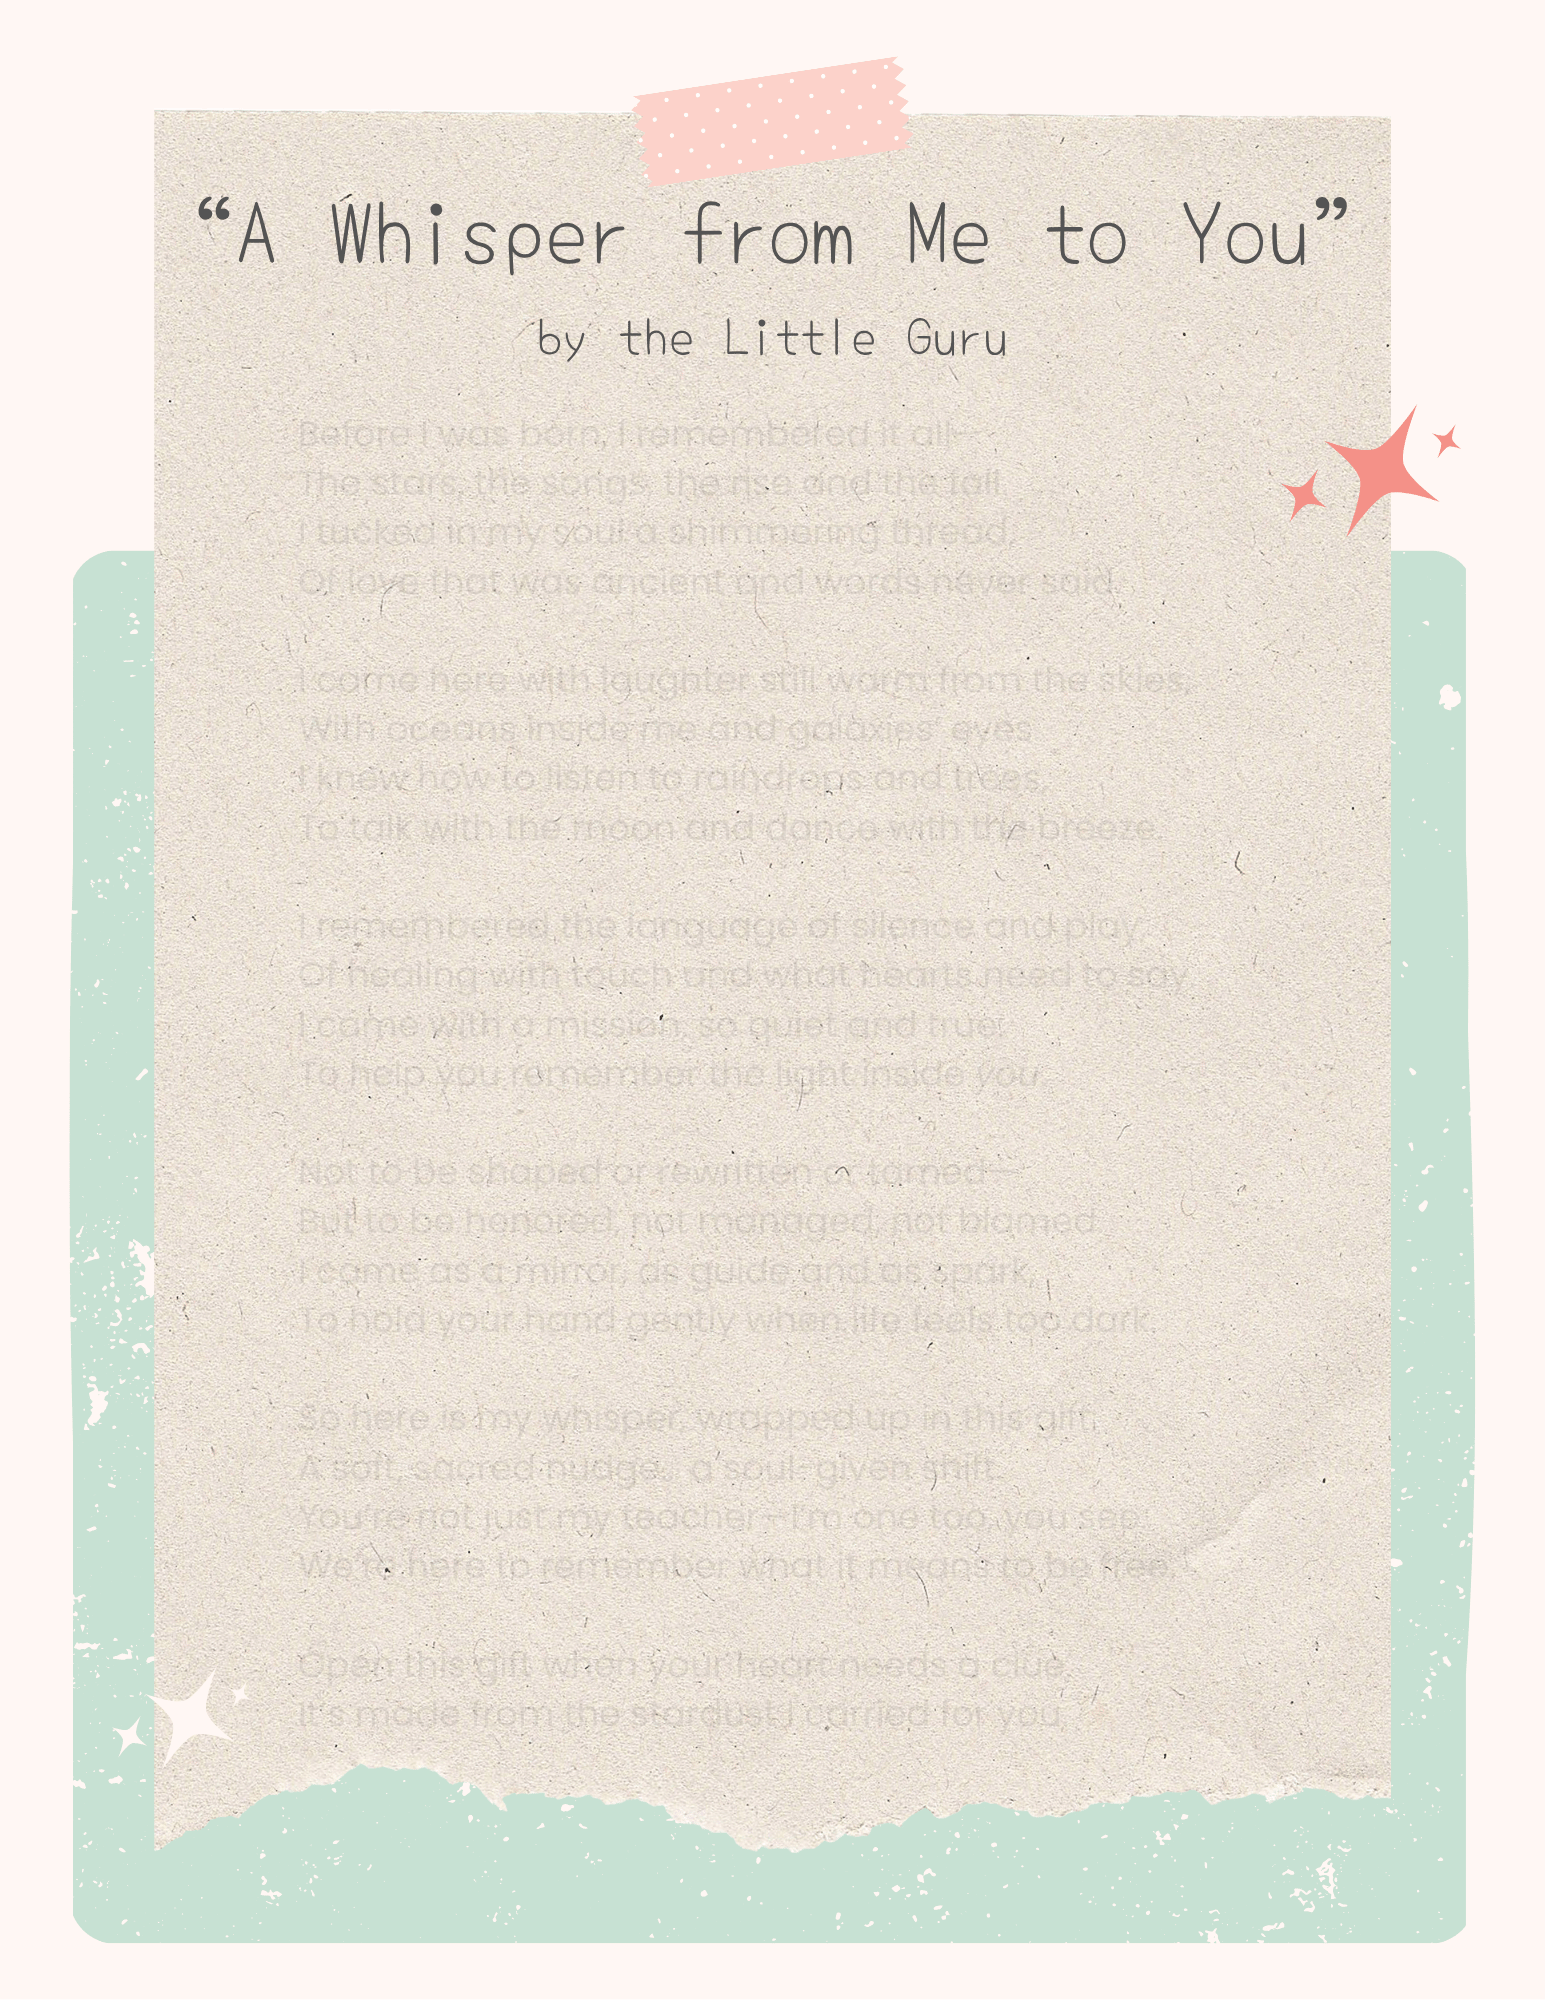 “A Whisper from Me to You”
by the Little Guru
Before I was born, I remembered it all—
The stars, the songs, the rise and the fall.
I tucked in my soul a shimmering thread,
Of love that was ancient and words never said.
I came here with laughter still warm from the skies,
With oceans inside me and galaxies’ eyes.
I knew how to listen to raindrops and trees,
To talk with the moon and dance with the breeze.
I remembered the language of silence and play,
Of healing with touch and what hearts need to say.
I came with a mission, so quiet and true:
To help you remember the light inside you.
Not to be shaped or rewritten or tamed—
But to be honored, not managed, not blamed.
I came as a mirror, as guide and as spark,
To hold your hand gently when life feels too dark.
So here is my whisper, wrapped up in this gift,
A soft, sacred nudge… a soul-given shift.
You’re not just my teacher—I’m one too, you see.
We’re here to remember what it means to be free.
Open this gift when your heart needs a clue,
It’s made from the stardust I carried for you.